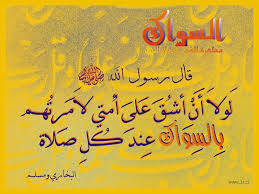 السواك
قال رسول الله ﷺ
لَولاَ أَنْ أَشُقَّ عَلىَ أُمتِي لأَمَرتُهُم
بِالسِواكِ عِندَ كُلِ صَلاة
البخاري ومسلم